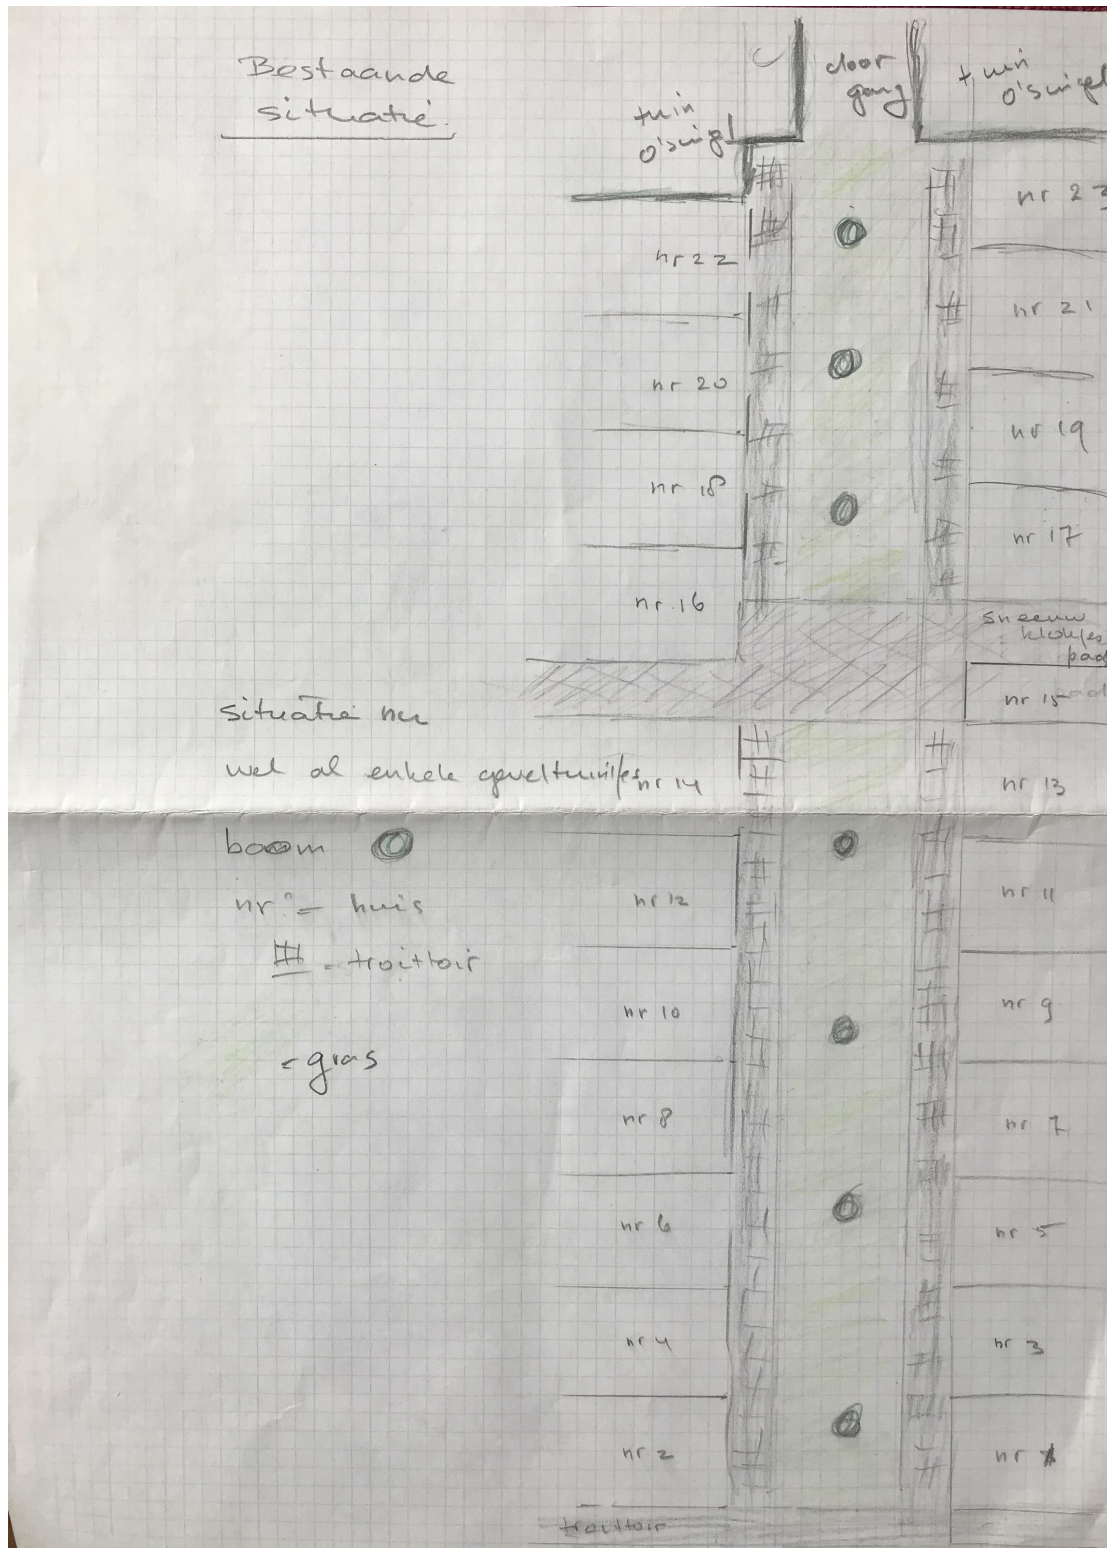 Bestaande
situatie.
door
gang
tuin
o'singel
tuin
o'singel
nr 22
nr 23
nr 20
nr 21
nr 18
nr 19
nr 16
nr 17
sneeuw
klokjes
pad
nr 15
situatie nu
wel al enkele geveltuintjes
nr 14
nr 13
boom
nr = huis
- troittoir
= gras
nr 12
nr 11
nr 10
nr 9
nr 8
nr 7
nr 6
nr 5
nr 4
nr 3
nr 2
nr 1
troittoir